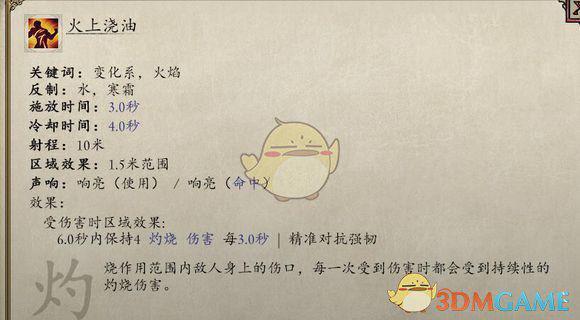 火上浇油
关键词：变化系，火焰
反制：水，寒霜
施放时间：3.0秒
冷却时间：4.0秒
射程：10米
区域效果：1.5米范围
声响：响亮（使用） / 响亮（命中）
效果：
受伤害时区域效果：
6.0秒内保持4 灼烧 伤害 每3.0秒 | 精准对抗强韧
灼
烧作用范围内敌人身上的伤口，每一次受到伤害时都会受到持续性的
灼烧伤害。
3DMGAME